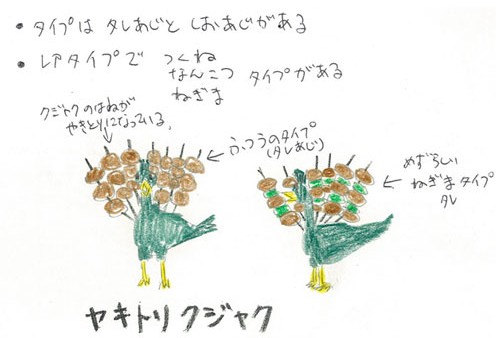 ・タイプは タレあじと しおあじがある
・レアタイプで つくね
なんこつ タイプがある
ねぎま
クジャクのはねが
やきとりになっている。
ふつうのタイプ
(タレあじ)
めずらしい
ねぎまタイプ
タレ
ヤキトリクジャク